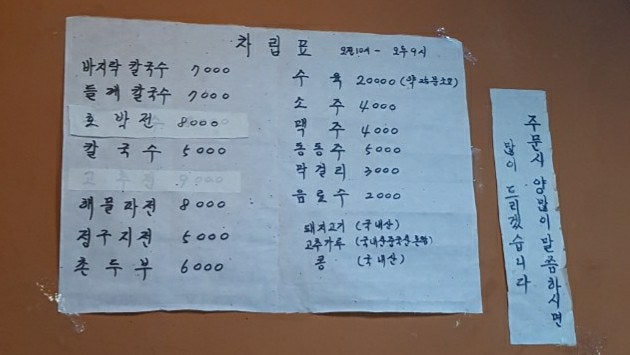 차림표 오전10시 - 오후9시
바지락 칼국수 7000
들깨 칼국수 7000
호박전 8000
칼국수 5000
고추전 9000
해물파전 8000
정구지전 5000
촌두부 6000
수육 20000 (약 소요)
소주 4000
맥주 4000
동동주 5000
막걸리 3000
음료수 2000
돼지고기 (국내산)
고추가루 (국내산중국산혼합)
콩 (국내산)
주문시 양많이 말씀하시면
많이 드리겠습니다